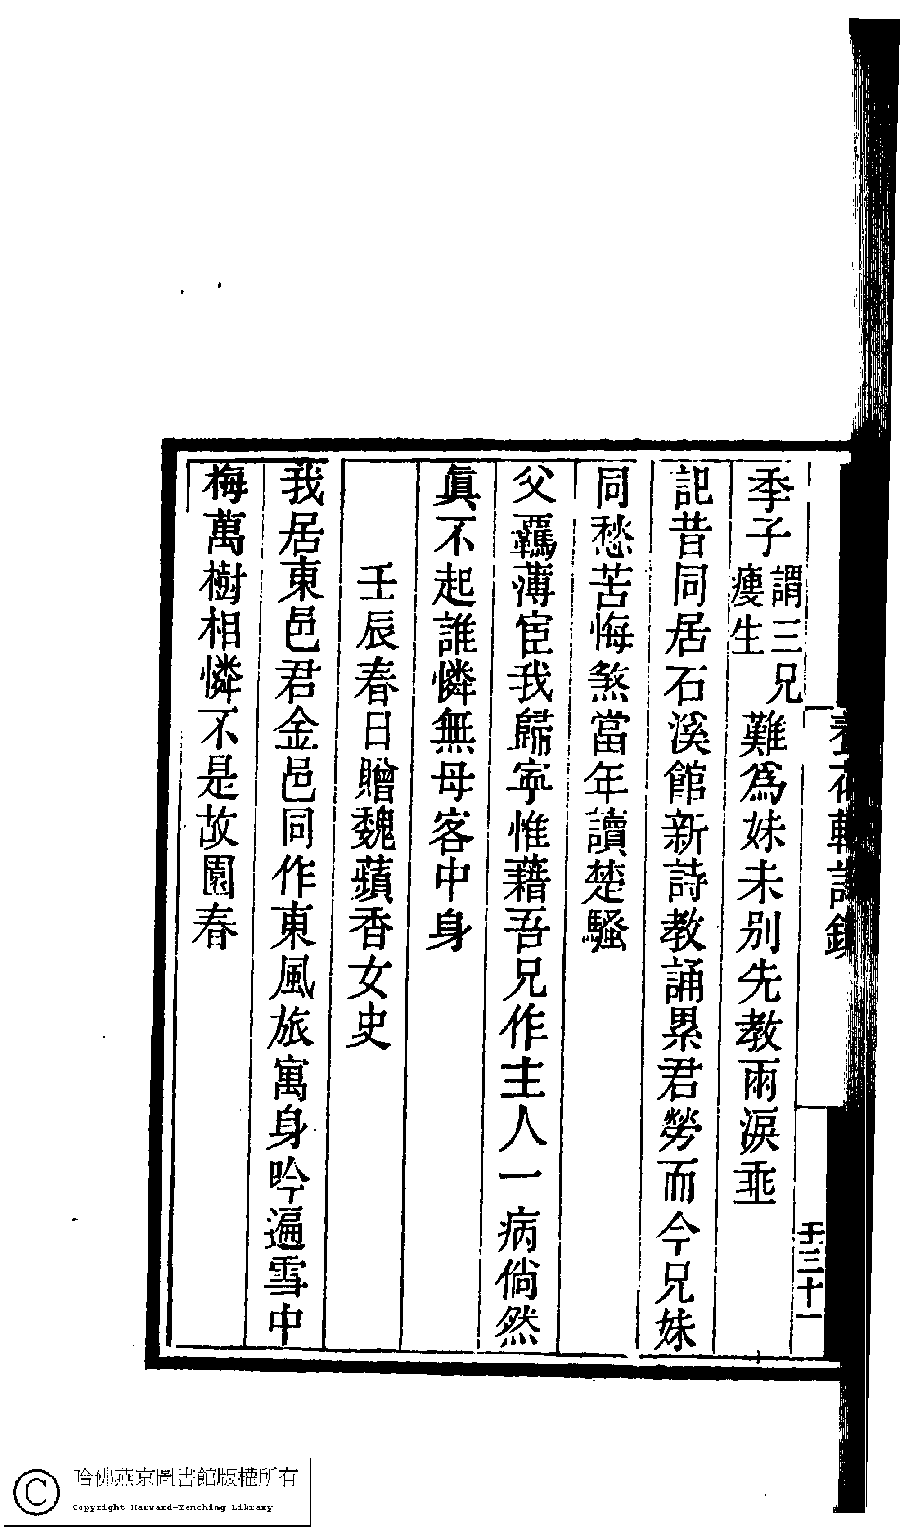 季子謂三兄瘦生難爲妹未別先教雨淚乖
記昔同居石溪館新詩教誦累君勞而今兄妹
同愁苦悔煞當年讀楚騷
父羈薄宦我歸寧惟藉吾兄作主人一病倘然
眞不起誰憐無母客中身
壬辰春日贈魏蘋香女史
我居東邑君金邑同作東風旅寓身吟遍雪中
梅萬樹相憐不是故園春
三十一
哈佛燕京圖書館版權所有
Copyright Harvard-Yenching Library